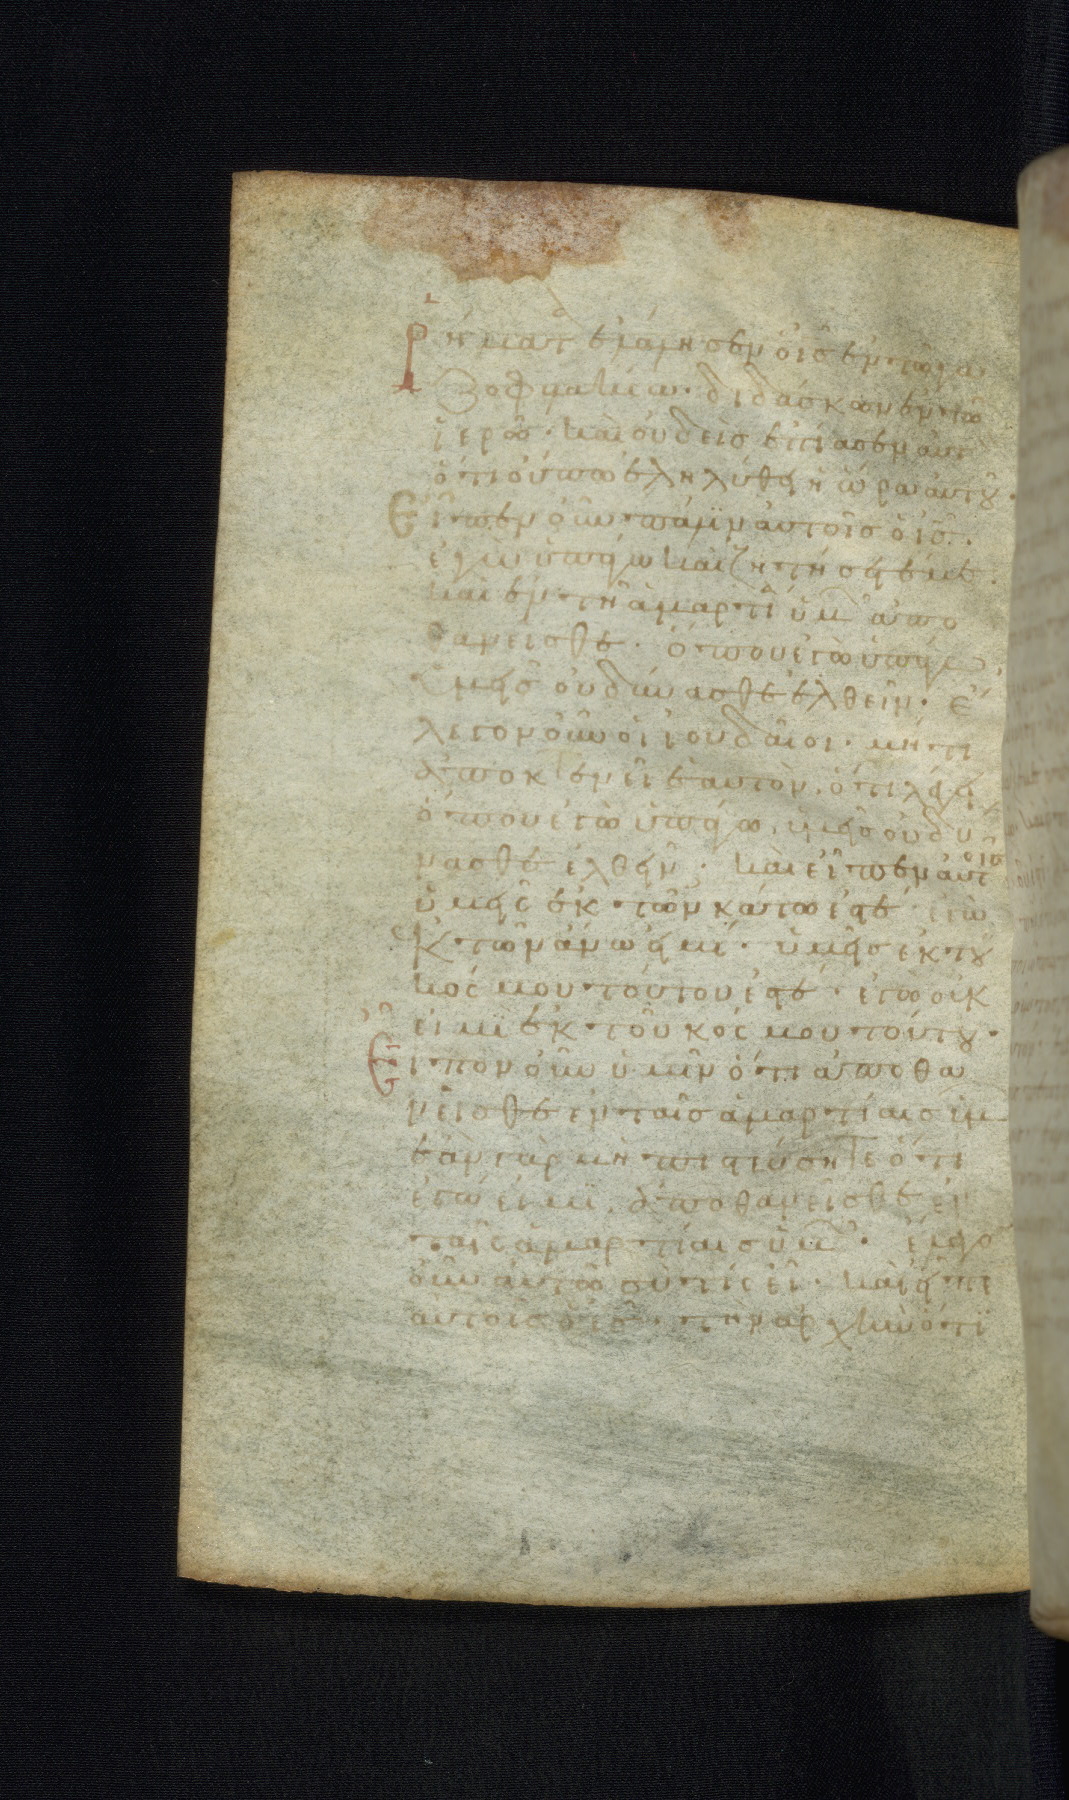 Ρήματ ἐλάλησεν ὁ ις ἐν τῶ γα
ζοφυλακίω· διδάσκων ἐν τῶ
ἱερῶ· καὶ οὐδεὶς ἐπίασεν αὐτ
ὅτι οὔπω ἐληλύθει ἡ ὥρα αὐτοῦ·
Εἶπεν οὖν πάλιν αὐτοῖς ὁ ις·
ἐγὼ ὑπάγω καὶ ζητήσετέ με
καὶ ἐν τῆ ἁμαρτία ὑμ ἀπο
θανεῖσθε· ὅπου ἐγὼ ὑπάγω
ὑμεῖς οὐ δύνασθε ἐλθεῖν· ἔ
λεγον οὖν οἱ ἰουδαῖοι· μήτι
ἀποκτενεῖ ἑαυτὸν, ὅτι λέγει
ὅπου ἐγὼ ὑπάγω, ὑμεῖς οὐ δύ
νασθε ἐλθεῖν· καὶ εἶπεν αὐτοῖς
ὑμεῖς ἐκ τῶν κάτω ἐστέ ἐγὼ
ἐκ τῶν ἄνω εἰμί· ὑμεῖς ἐκ τοῦ
κόσμου τούτου ἐστέ· ἐγὼ οὐκ
εἰμὶ ἐκ τοῦ κόσμου τούτου·
Εἶπον οὖν ὑμῖν ὅτι ἀποθα
νεῖσθε ἐν ταῖς ἁμαρτίαις ὑμ
ἐὰν γὰρ μὴ πιστεύσητε ὅτι
ἐγώ εἰμι, ἀποθανεῖσθε ἐν
ταῖς ἁμαρτίαις ὑμ· ἔλεγο
οὖν αὐτῶ σὺ τίς εἶ· καὶ εἶπε
αὐτοῖς ὁ ις· τὴν ἀρχὴν ὅτι